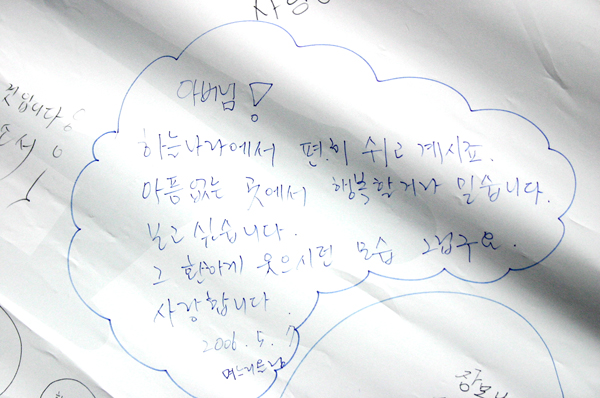 아버님!
하늘나라에서 편히 쉬고 계시죠.
아픔없는 곳에서 행복할거라 믿습니다.
보고 싶습니다.
그 환하게 웃으시던 모습 그립구요.
사랑합니다.
2006. 5. 7
며느리올림
것입니다